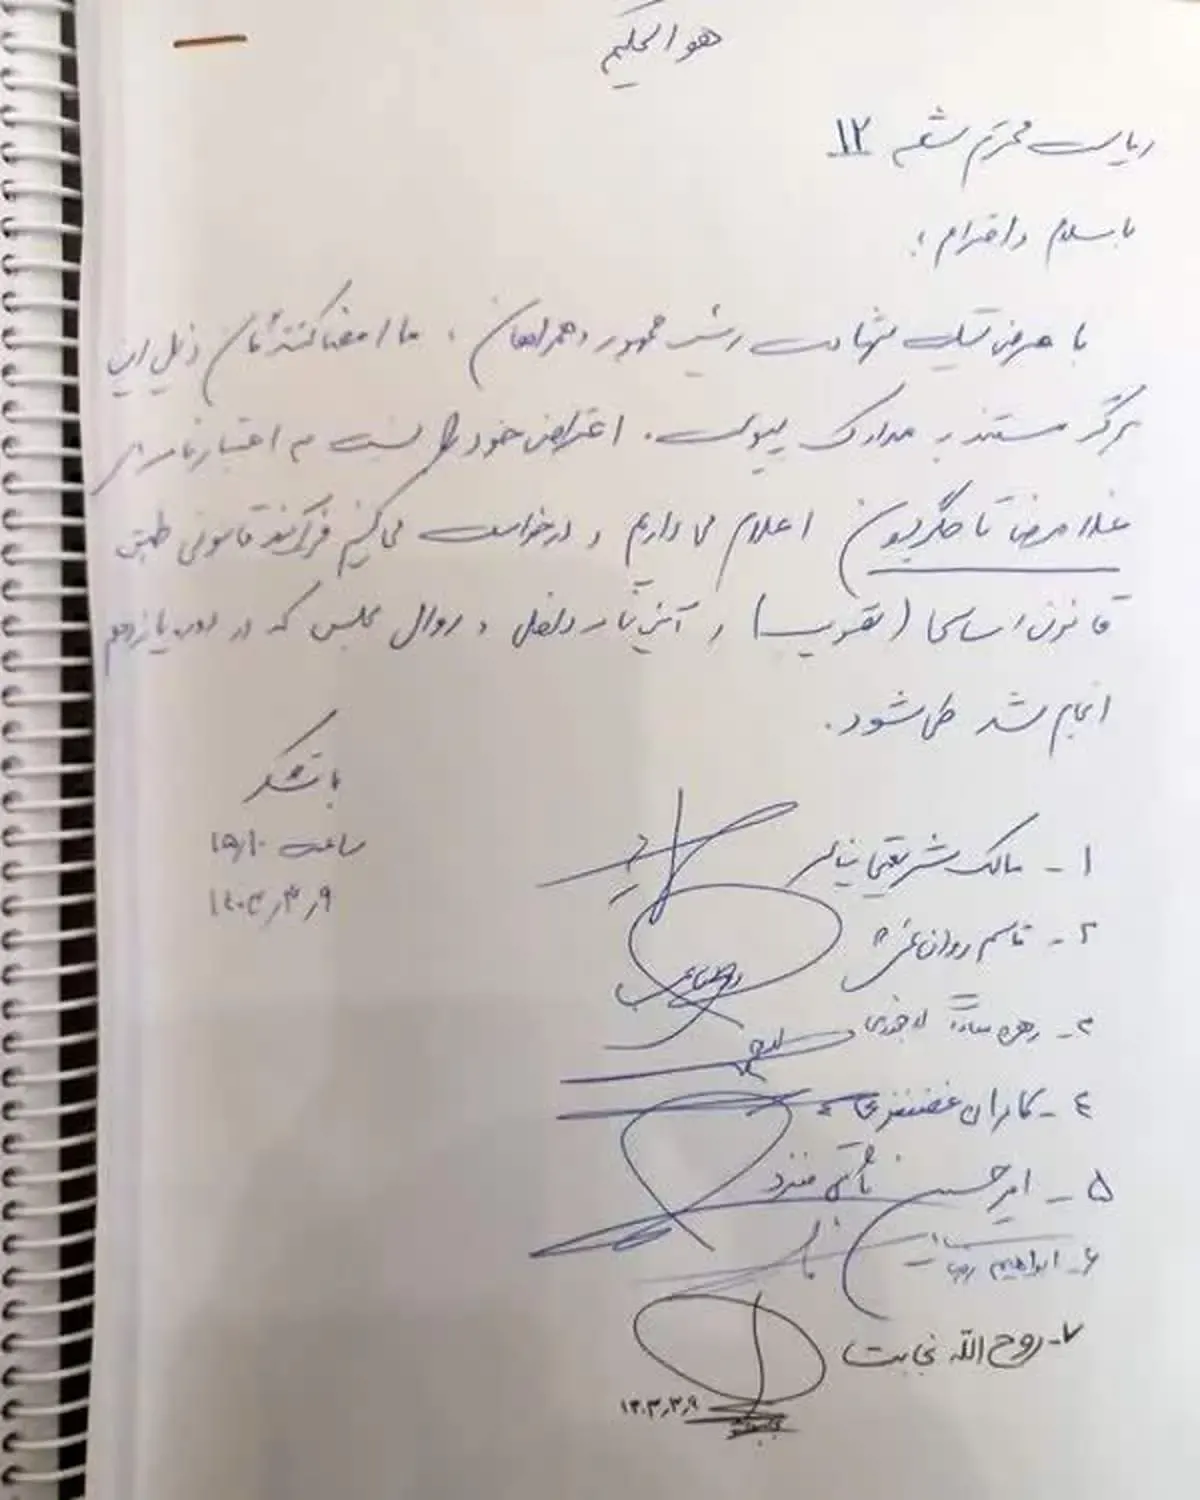 هو الحکیم
ریاست محترم شعبه ۱۲
با سلام و احترام؛
با عرض تسلیت شهادت رئیس جمهور و همراهان، ما امضا کنندگان ذیل این
برگه مستند به مدارک پیوست. اعتراض خود را نسبت به اعتبارنامه
غلامرضا تاجگردون اعلام می داریم و درخواست می کنیم فرآیند قانونی طبق
قانون اساسی و آئین نامه داخلی و روال مجلس که در دوره یازدهم
انجام شد طی شود.
با تشکر
ساعت ۱۵/۱۰
۱۴۰۳٫۳٫۹
۱ - مالک شریعتی نیاسر
۲ - قاسم روان بخش
۳ - زهره سادات لاجوردی
٤ - کامران غضنفری
۵ - امیرحسین ثابتی منفرد
۶ - ابراهیم
۷ - روح الله نجابت
۱۴۰۳٫۳٫۹